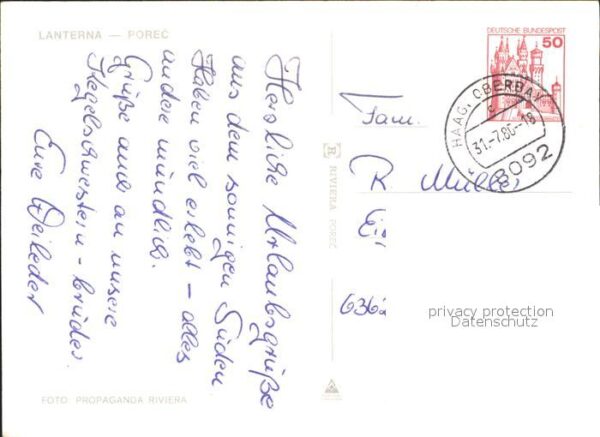 LANTERNA — POREČ
Herzliche Urlaubsgrüße
aus dem sonnigen Süden
Haben viel erlebt – alles
andere mündlich.
Grüße auch an unsere
Kegelschwestern - brüder.
Eure Weileder
FOTO PROPAGANDA RIVIERA
R RIVIERA POREČ
DEUTSCHE BUNDESPOST
50
HAAG, OBERBAY
c
31.-7.80.-18
8092
Fam.
R. Müller
636
privacy protection
Datenschutz